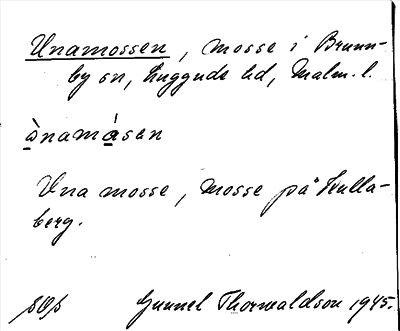 Unamossen, mosse i Brunn-
by sn, Luggude hd, Malm. l.
ùnamásen
Una mosse, mosse på Kulla-
berg.
Gunnel Thorwaldson 1945.